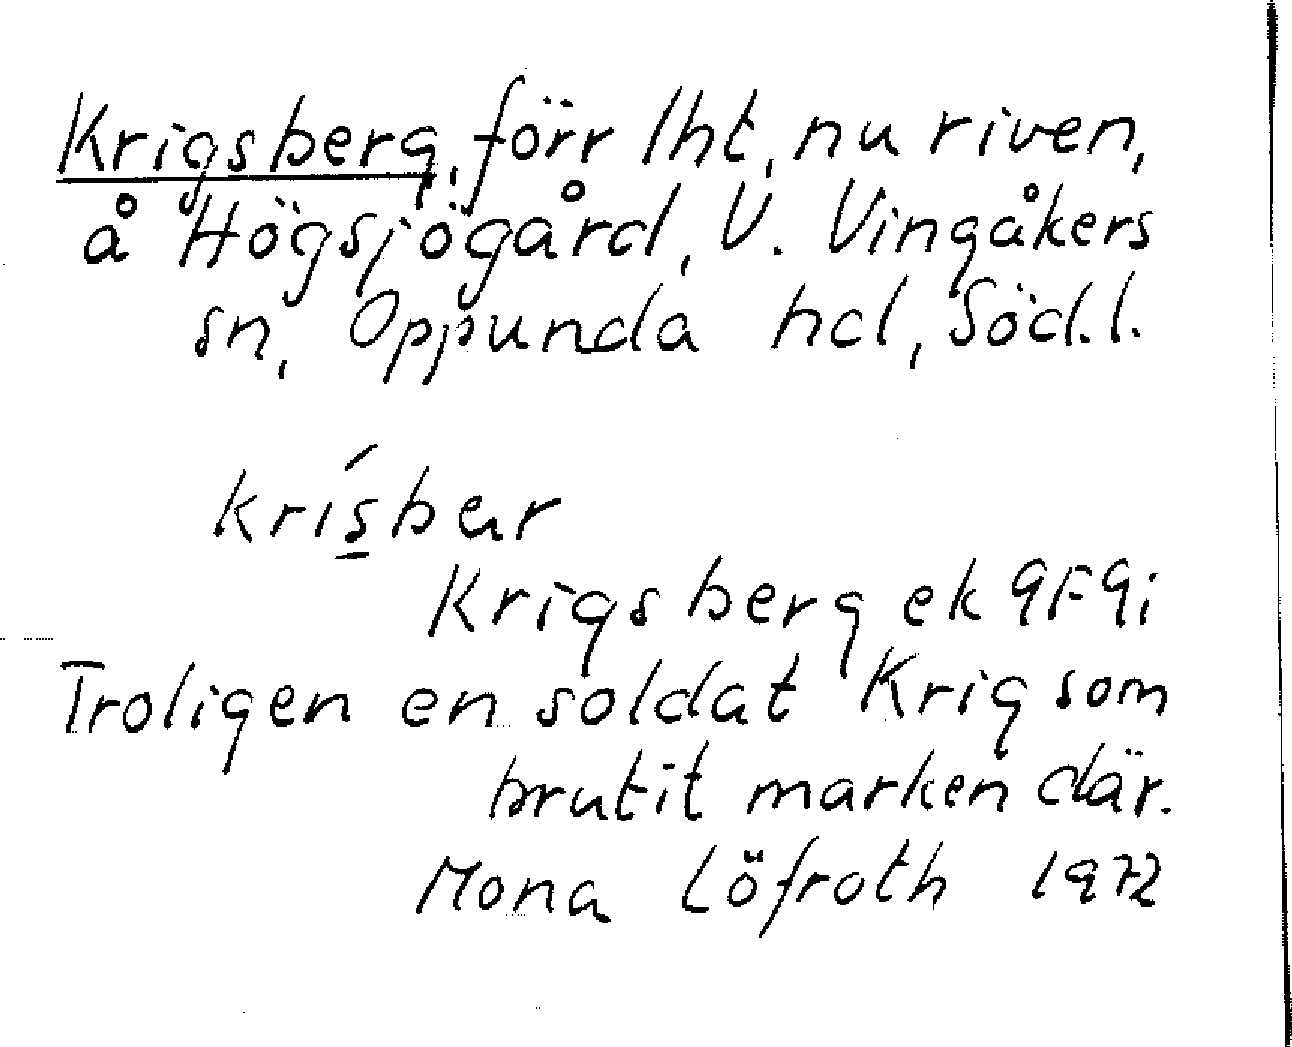 Krigsberg, förr lht, nu riven,
å Högsjögård, V. Vingåkers
sn, Oppunda hd, Söd.l.
krís̲bar
Krigsberg ek 9F9i
Troligen en soldat Krig som
brutit marken där.
Mona Löfroth 1972